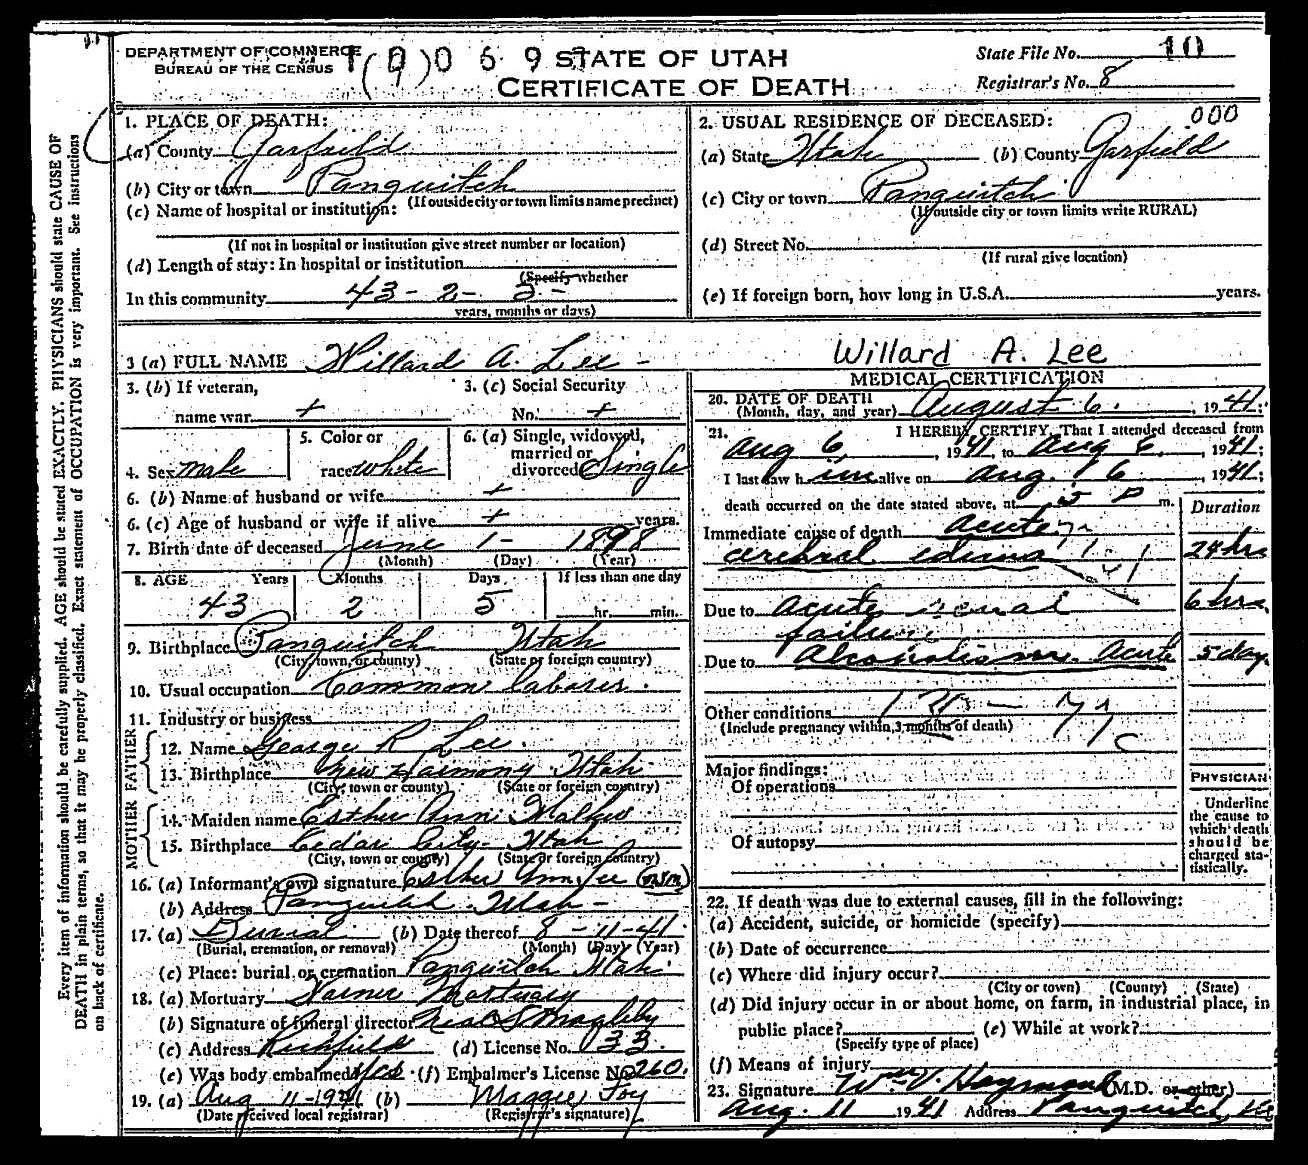 DEPARTMENT OF COMMERCE
BUREAU OF THE CENSUS
STATE OF UTAH
CERTIFICATE OF DEATH
State File No. 10
Registrar's No. 8
Every item of information should be carefully supplied. AGE should be stated EXACTLY. PHYSICIANS should state CAUSE OF
DEATH in plain terms, so that it may be properly classified. Exact statement of OCCUPATION is very important. See instructions
on back of certificate.
1. PLACE OF DEATH:
(a) County Garfield
(b) City or town Panguitch
(If outside city or town limits name precinct)
(c) Name of hospital or institution:
(If not in hospital or institution give street number or location)
(d) Length of stay: In hospital or institution
(Specify whether
In this community 43 - 2 - 5 -
years, months or days)
2. USUAL RESIDENCE OF DECEASED: 000
(a) State Utah (b) County Garfield
(c) City or town Panguitch
(If outside city or town limits write RURAL)
(d) Street No.
(If rural give location)
(e) If foreign born, how long in U.S.A. years.
3 (a) FULL NAME Willard A. Lee - Willard A. Lee
3. (b) If veteran,
name war +
3. (c) Social Security
No. +
4. Sex male
5. Color or
race white
6. (a) Single, widowed,
married or
divorced Single
6. (b) Name of husband or wife +
6. (c) Age of husband or wife if alive + years.
7. Birth date of deceased June 1 - 1898
(Month) (Day) (Year)
8. AGE Years Months Days If less than one day
43 2 5 hr. min.
9. Birthplace Panguitch Utah
(City, town, or county) (State or foreign country)
10. Usual occupation Common laborer.
11. Industry or business
FATHER
12. Name George R Lee.
13. Birthplace New Harmony Utah
(City, town or county) (State or foreign country)
MOTHER
14. Maiden name Esther Ann
15. Birthplace Cedar City - Utah
(City, town or county) (State or foreign country)
16. (a) Informant's own signature Esther Ann Lee
(b) Address Panguitch Utah -
17. (a) Burial (b) Date thereof 8 - 11 - 41
(Burial, cremation, or removal) (Month) (Day) (Year)
(c) Place: burial or cremation Panguitch Utah
18. (a) Mortuary Mortuary
(b) Signature of funeral director
(c) Address Richfield (d) License No. 33.
(e) Was body embalmed yes (f) Embalmer's License No. 260.
19. (a) Aug 11-1941 (b) Maggie Foy
(Date received local registrar) (Registrar's signature)
MEDICAL CERTIFICATION
20. DATE OF DEATH
(Month, day, and year) August 6. , 1941;
21. I HEREBY CERTIFY, That I attended deceased from
Aug 6 , 1941, to Aug 6 , 1941;
I last saw him alive on Aug. 6 , 1941;
death occurred on the date stated above, at 5 P m.
Duration
Immediate cause of death Acute
cerebral edema 24 hrs
Due to Acute renal 6 hrs.
failure
Due to Alcoholism. Acute 5 day.
Other conditions
(Include pregnancy within 3 months of death)
Major findings:
Of operations
Of autopsy
PHYSICIAN
Underline
the cause to
which death
should be
charged sta-
tistically.
22. If death was due to external causes, fill in the following:
(a) Accident, suicide, or homicide (specify)
(b) Date of occurrence
(c) Where did injury occur?
(City or town) (County) (State)
(d) Did injury occur in or about home, on farm, in industrial place, in
public place? (e) While at work?
(Specify type of place)
(f) Means of injury
23. Signature Wm. V. Haymond (M.D. or other)
Aug. 11 1941 Address Panguitch,